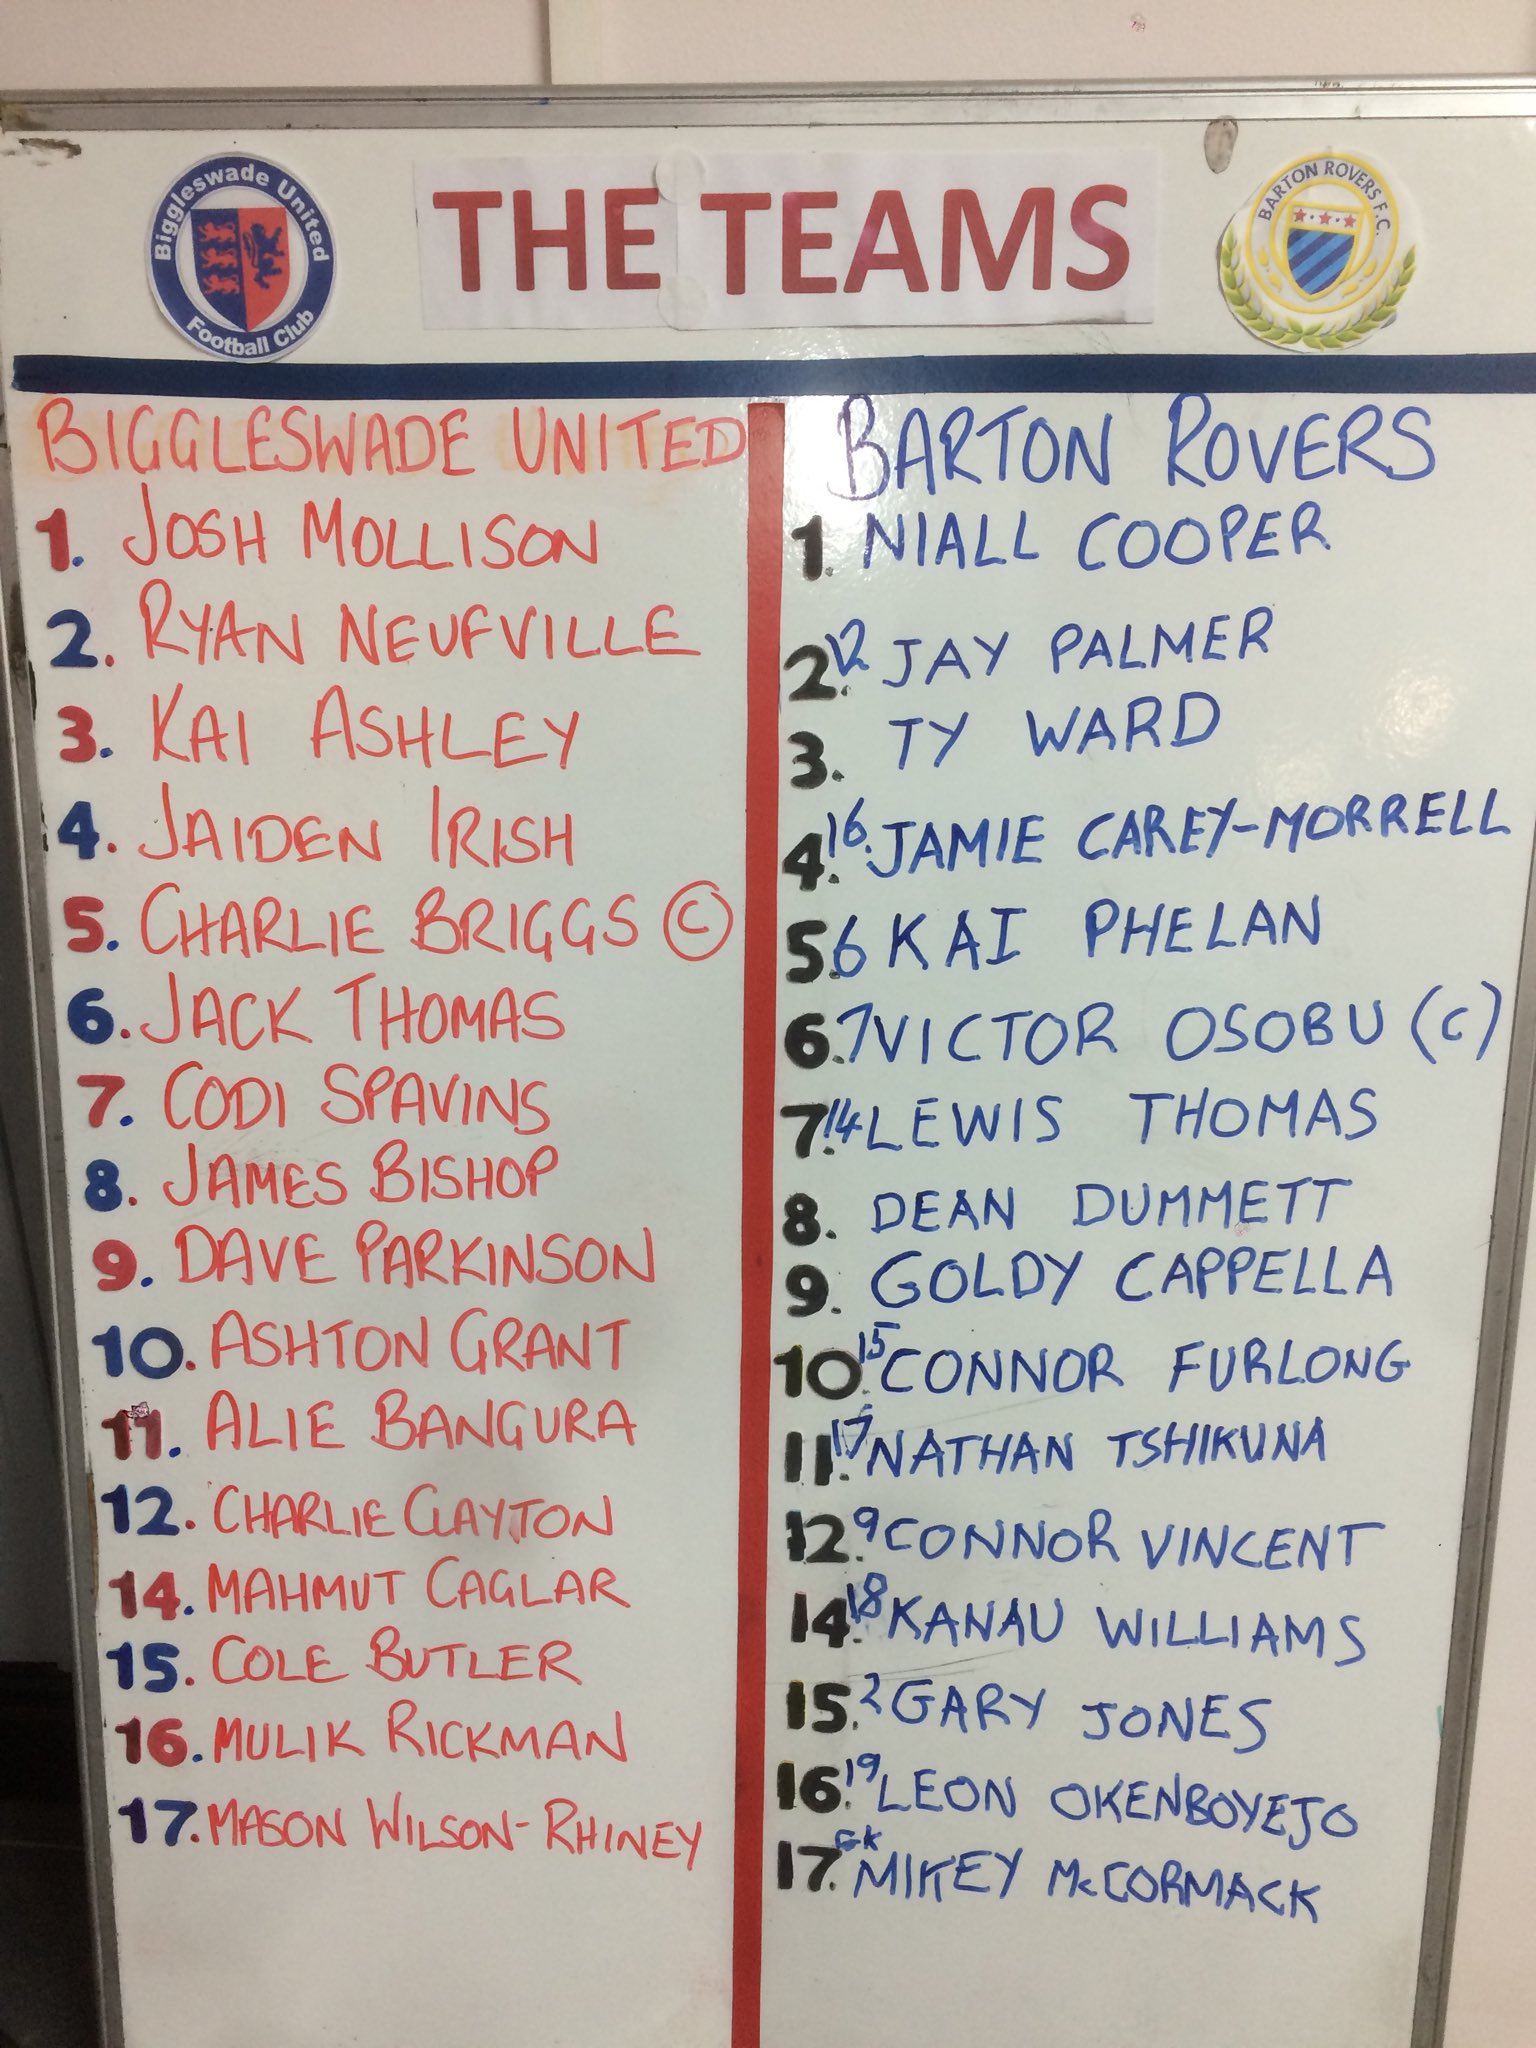 Biggleswade United
Football Club
THE TEAMS
BARTON ROVERS F.C.
BIGGLESWADE UNITED
1. JOSH MOLLISON
2. RYAN NEUFVILLE
3. KAI ASHLEY
4. JAIDEN IRISH
5. CHARLIE BRIGGS (C)
6. JACK THOMAS
7. CODI SPAVINS
8. JAMES BISHOP
9. DAVE PARKINSON
10. ASHTON GRANT
11. ALIE BANGURA
12. CHARLIE CLAYTON
14. MAHMUT CAGLAR
15. COLE BUTLER
16. MULIK RICKMAN
17. MASON WILSON-RHINEY
BARTON ROVERS
1. NIALL COOPER
2. 12 JAY PALMER
3. TY WARD
4. 16 JAMIE CAREY-MORRELL
5. 6 KAI PHELAN
6. 7 VICTOR OSOBU (C)
7. 14 LEWIS THOMAS
8. DEAN DUMMETT
9. GOLDY CAPPELLA
10. 15 CONNOR FURLONG
11. 17 NATHAN TSHIKUNA
12. 9 CONNOR VINCENT
14. 18 KANAU WILLIAMS
15. 2 GARY JONES
16. 19 LEON OKENBOYEJO
17. GK MIKEY McCORMACK